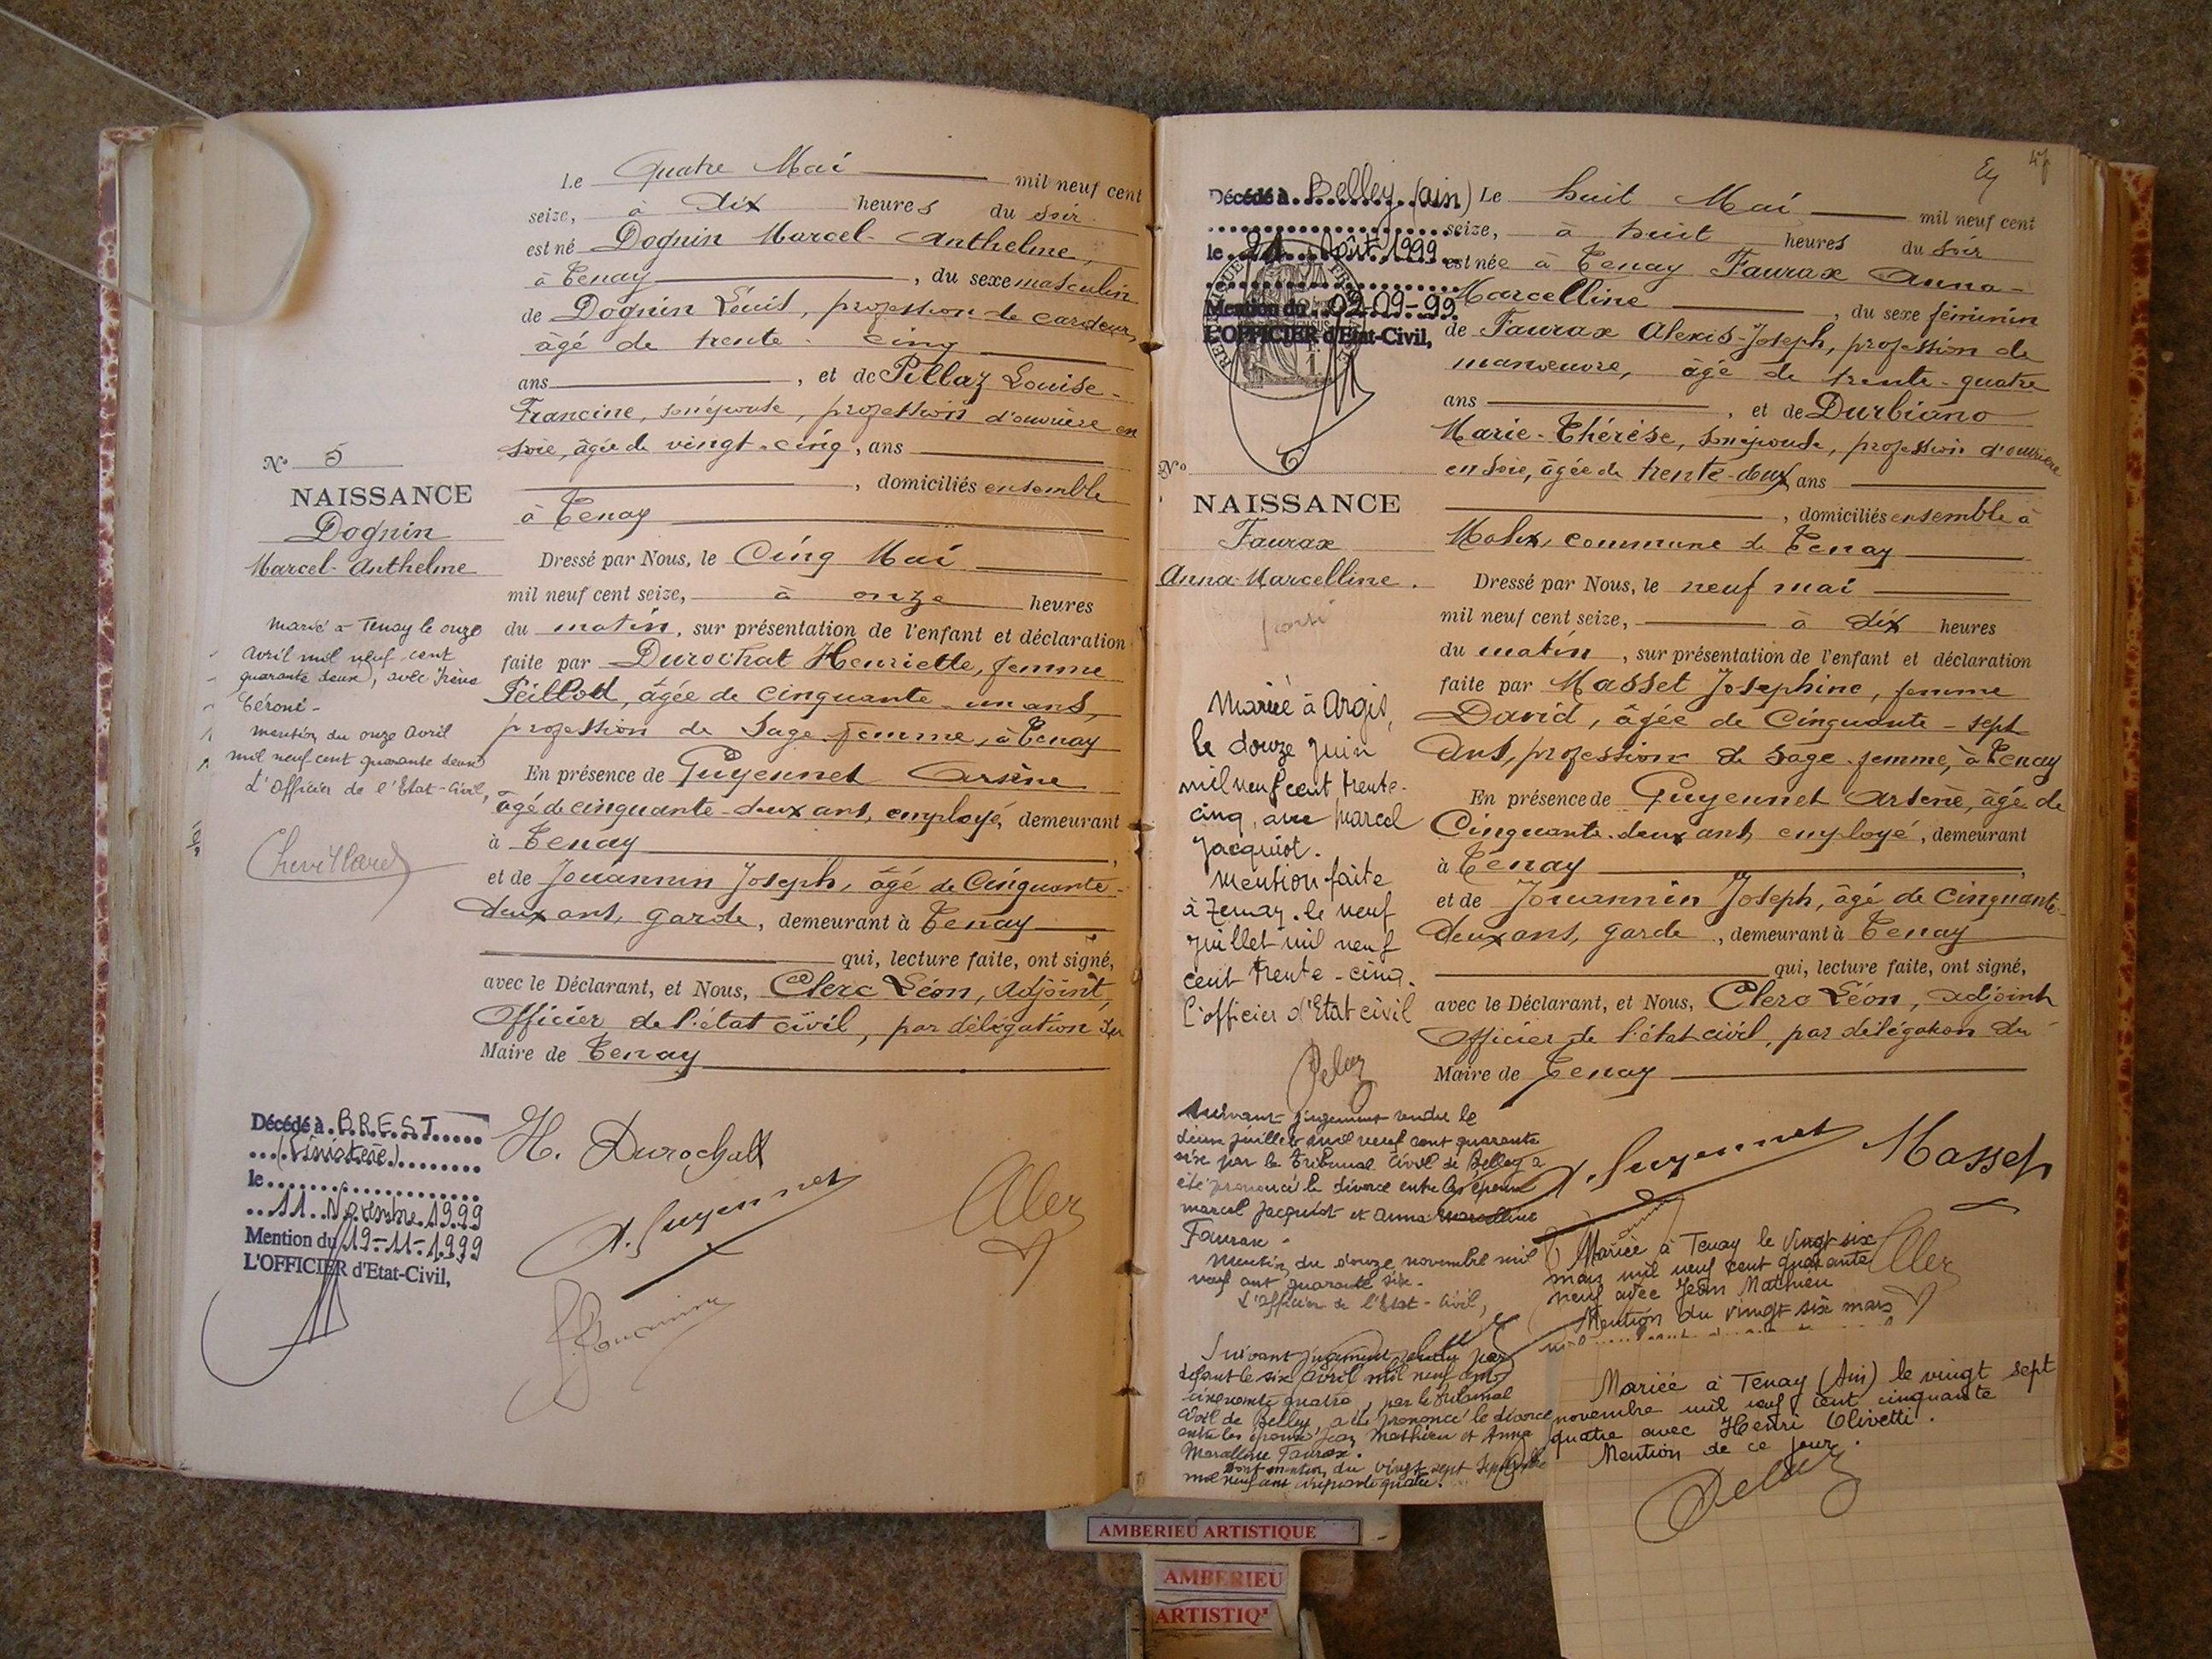 Le Quatre Mai mil neuf cent
seize, à dix heures du soir
est né Dognin Marcel-Anthelme,
à Tenay, du sexe masculin
de Dognin Louis, profession de cardeur,
âgé de trente-cinq
ans, et de Pillaz Louise-
Francine, son épouse, profession d'ouvrière en
soie, âgée de vingt-cinq, ans
, domiciliés ensemble
à Tenay
N° 5
NAISSANCE
Dognin
Marcel-Anthelme
Dressé par Nous, le Cinq Mai
mil neuf cent seize, à onze heures
du matin, sur présentation de l'enfant et déclaration
faite par Durochat Henriette, femme
Peillod, âgée de cinquante-un ans,
profession de Sage-femme, à Tenay
En présence de Guyennet Arsène
âgé de cinquante-deux ans, employé, demeurant
à Tenay,
et de Jouannin Joseph, âgé de Cinquante-
deux ans, garde, demeurant à Tenay
qui, lecture faite, ont signé,
avec le Déclarant, et Nous, Clerc Léon, Adjoint,
Officier de l'état civil, par délégation du
Maire de Tenay
Marié à Tenay le onze
avril mil neuf cent
quarante deux, avec Irène
Céroni-
Mention du onze Avril
mil neuf cent quarante deux
L'Officier de l'Etat-Civil,
Chevillard
H. Durochat
A. Guyennet
Clerc
J. Jouannin
Décédé à BREST
(Finistère)
le
11 Novembre 1999
Mention du 19-11-1999
L'OFFICIER d'Etat-Civil,
47
Décédé à Belley (ain)
le 21 Août 1999
Mention du 02-09-99
L'OFFICIER d'Etat-Civil,
Le huit Mai mil neuf cent
seize, à huit heures du soir
est née à Tenay Faurax Anna-
Marcelline, du sexe féminin
de Faurax Alexis-Joseph, profession de
manoeuvre, âgé de trente-quatre
ans, et de Durbiano
Marie-Thérèse, son épouse, profession d'ouvrière
en soie, âgée de trente-deux ans
, domiciliés ensemble à
commune de Tenay
N°
NAISSANCE
Faurax
Anna-Marcelline.
Dressé par Nous, le neuf mai
mil neuf cent seize, à dix heures
du matin, sur présentation de l'enfant et déclaration
faite par Masset Josephine, femme
David, âgée de Cinquante-sept
ans, profession de sage-femme, à Tenay
En présence de Guyennet Arsène, âgé de
Cinquante-deux ans, employé, demeurant
à Tenay,
et de Jouannin Joseph, âgé de cinquante-
deux ans, garde, demeurant à Tenay
qui, lecture faite, ont signé,
avec le Déclarant, et Nous, Clerc Léon, adjoint
Officier de l'état civil, par délégation du
Maire de Tenay
Mariée à Argis,
le douze juin
mil neuf cent trente-
cinq, avec Marcel
Jacquiot.
Mention faite
à Tenay. le neuf
juillet mil neuf
cent trente-cinq.
L'officier d'Etat civil
A. Guyennet
Masset
Clerc
Suivant jugement rendu le
deux juillet mil neuf cent quarante
six par le Tribunal Civil de Belley a
été prononcé le divorce entre les époux
Marcel Jacquiot et Anna Marcelline
Faurax.
Mention du douze novembre mil
neuf cent quarante six.
L'Officier de l'Etat-Civil,
Mariée à Tenay le vingt six
mars mil neuf cent quarante
neuf avec Jean Mathieu
Mention du vingt six mars
Suivant jugement rendu par
défaut le six avril mil neuf cent
cinquante quatre, par le tribunal
Civil de Belley, a été prononcé le divorce
entre les époux Jean Mathieu et Anna
Marcelline Faurax.
Dont mention du vingt sept septembre
mil neuf cent cinquante quatre.
Mariée à Tenay (Ain) le vingt sept
novembre mil neuf cent cinquante
quatre avec Henri Olivetti.
Mention de ce jour.
AMBERIEU ARTISTIQUE
AMBERIEU
ARTISTIQ